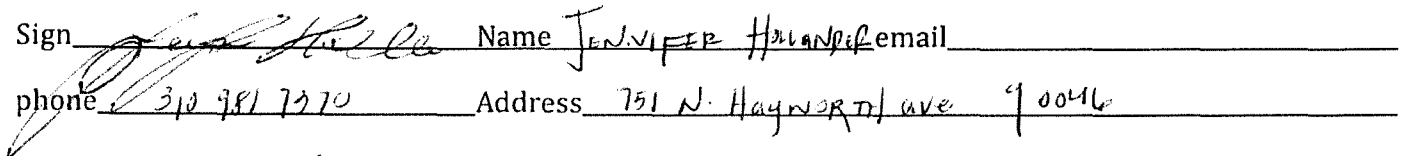 Sign Name JENNIFER HOLLANDER email
phone 310 981 7370 Address 751 N. HAYWORTH ave 90046